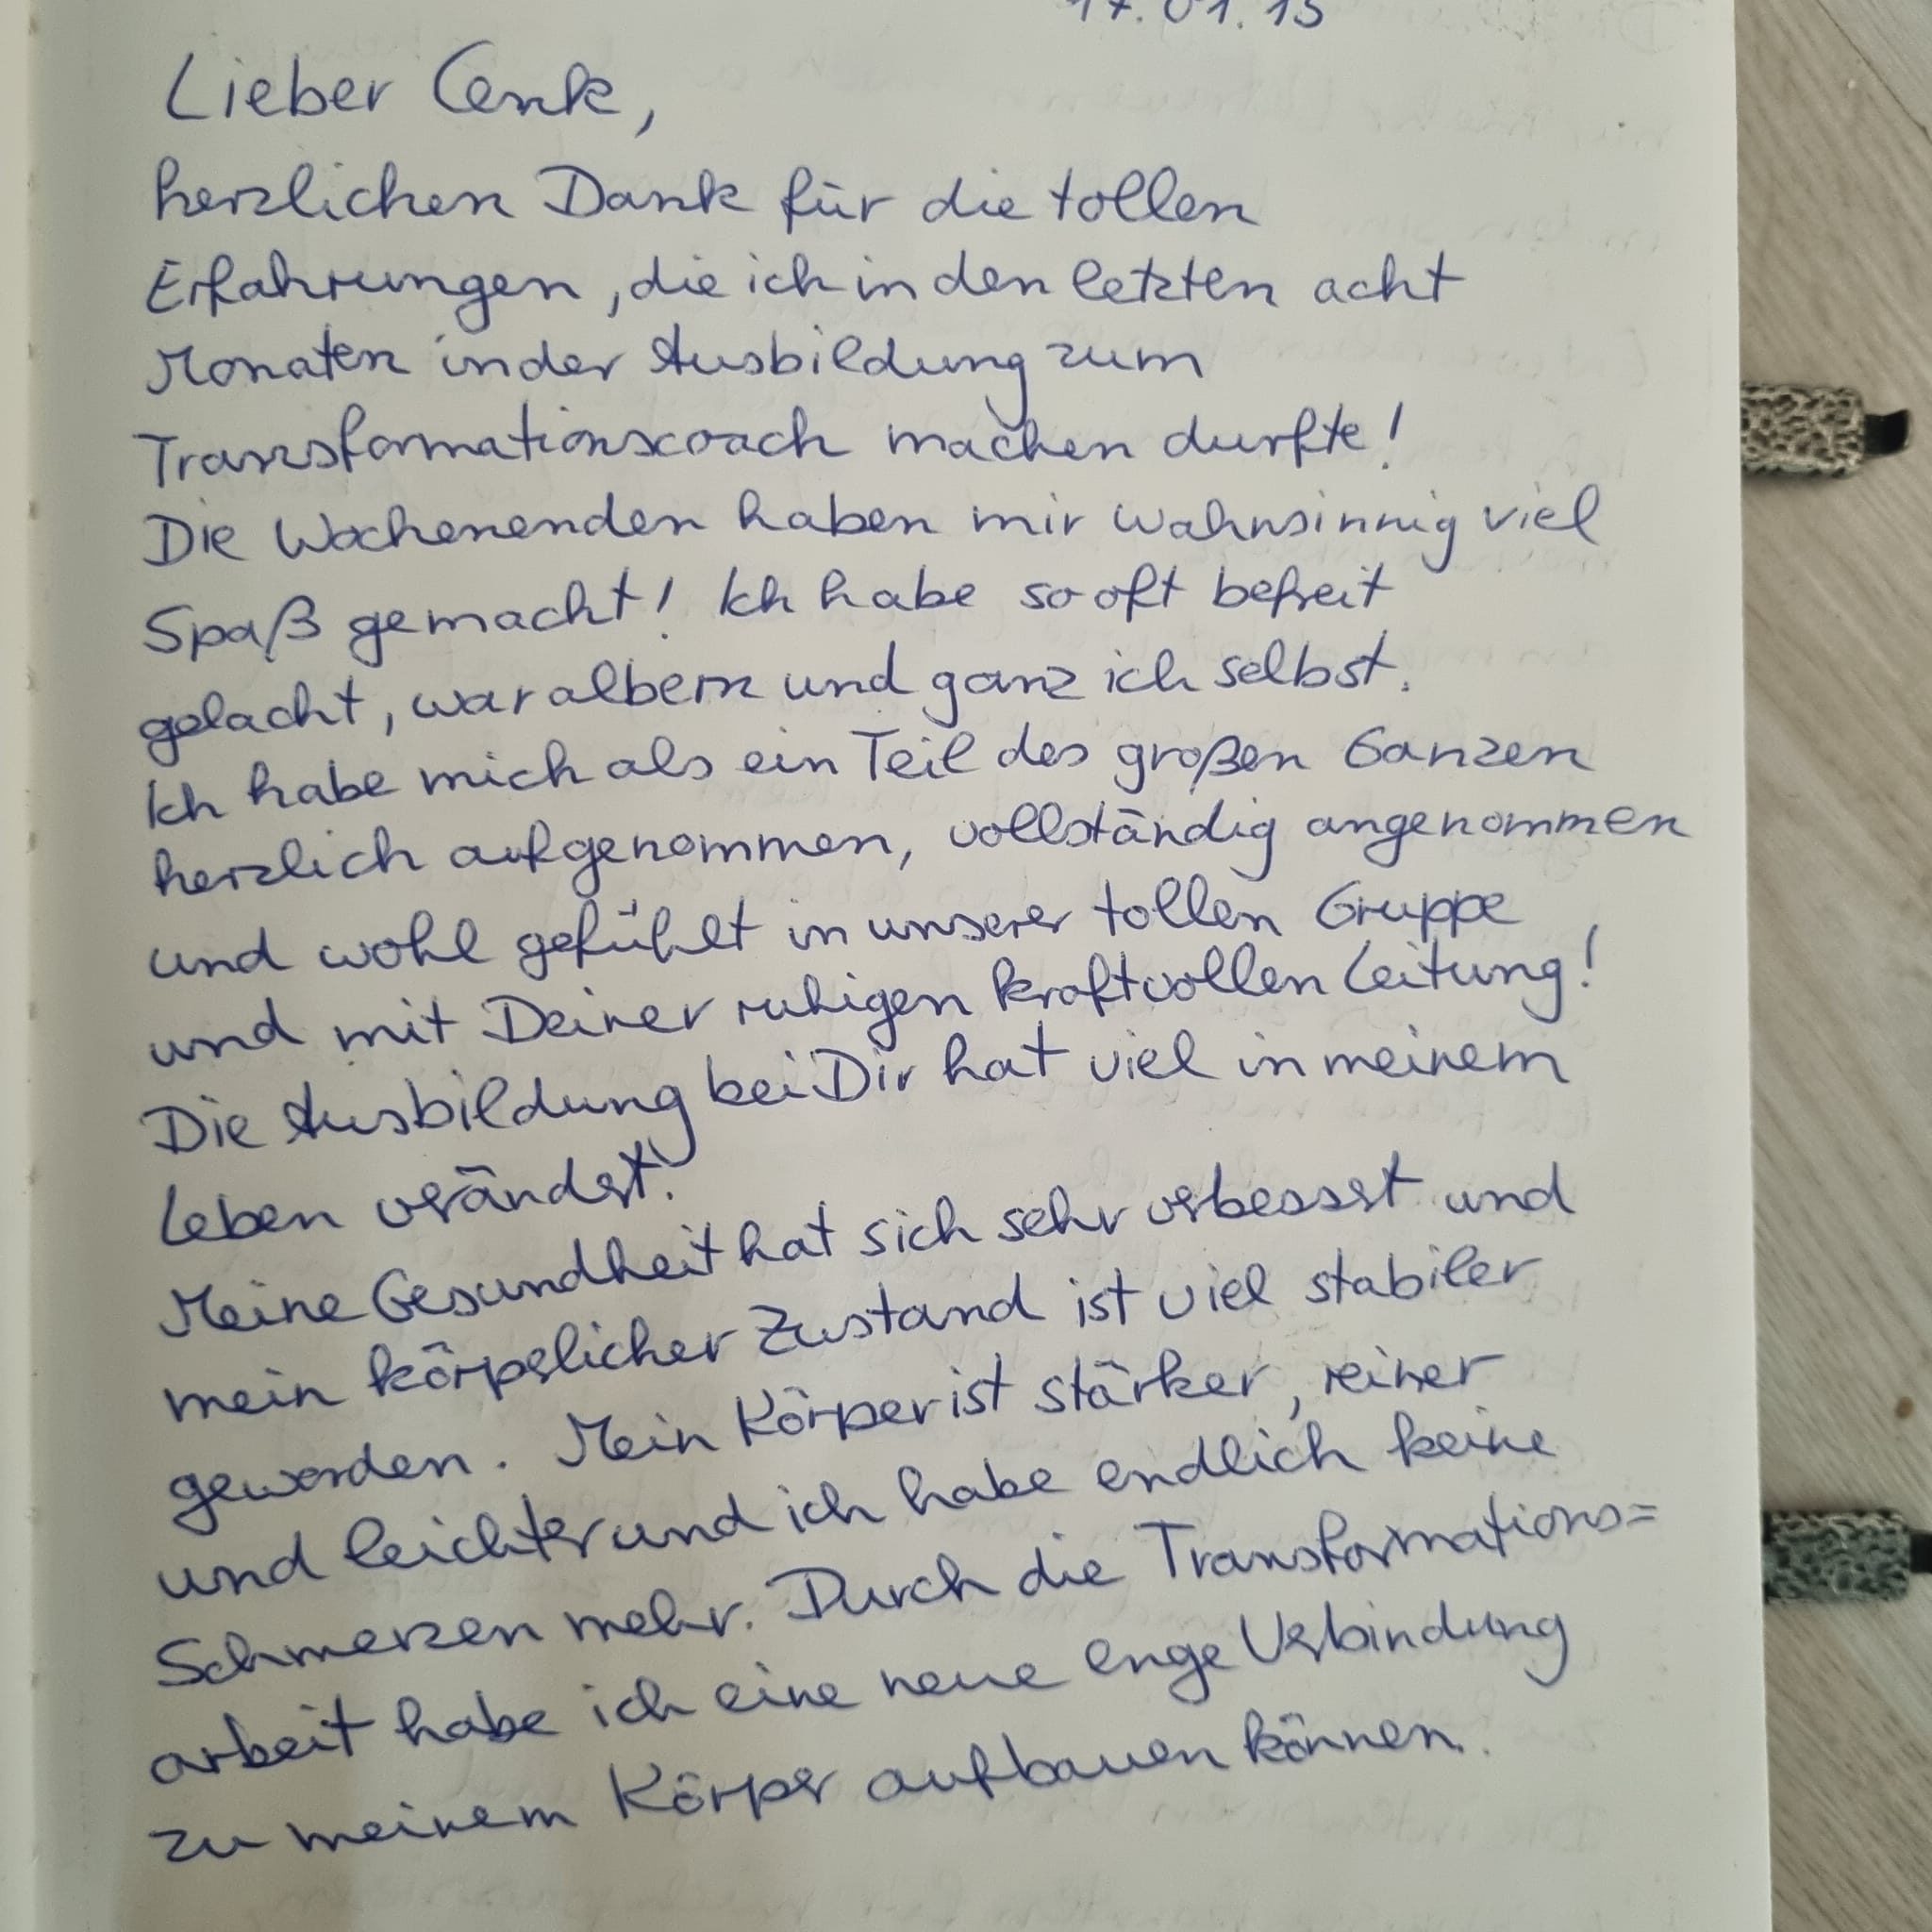 17.01.15
Lieber Cenk,
herzlichen Dank für die tollen
Erfahrungen, die ich in den letzten acht
Monaten in der Ausbildung zum
Transformationscoach machen durfte!
Die Wochenenden haben mir wahnsinnig viel
Spaß gemacht! Ich habe so oft befreit
gelacht, war albern und ganz ich selbst.
Ich habe mich als ein Teil des großen Ganzen
herzlich aufgenommen, vollständig angenommen
und wohl gefühlt in unserer tollen Gruppe
und mit Deiner ruhigen kraftvollen Leitung!
Die Ausbildung bei Dir hat viel in meinem
Leben verändert!
Meine Gesundheit hat sich sehr verbessert und
mein körperlicher Zustand ist viel stabiler
geworden. Mein Körper ist stärker, reiner
und leichter und ich habe endlich keine
Schmerzen mehr. Durch die Transformations=
arbeit habe ich eine neue enge Verbindung
zu meinem Körper aufbauen können.